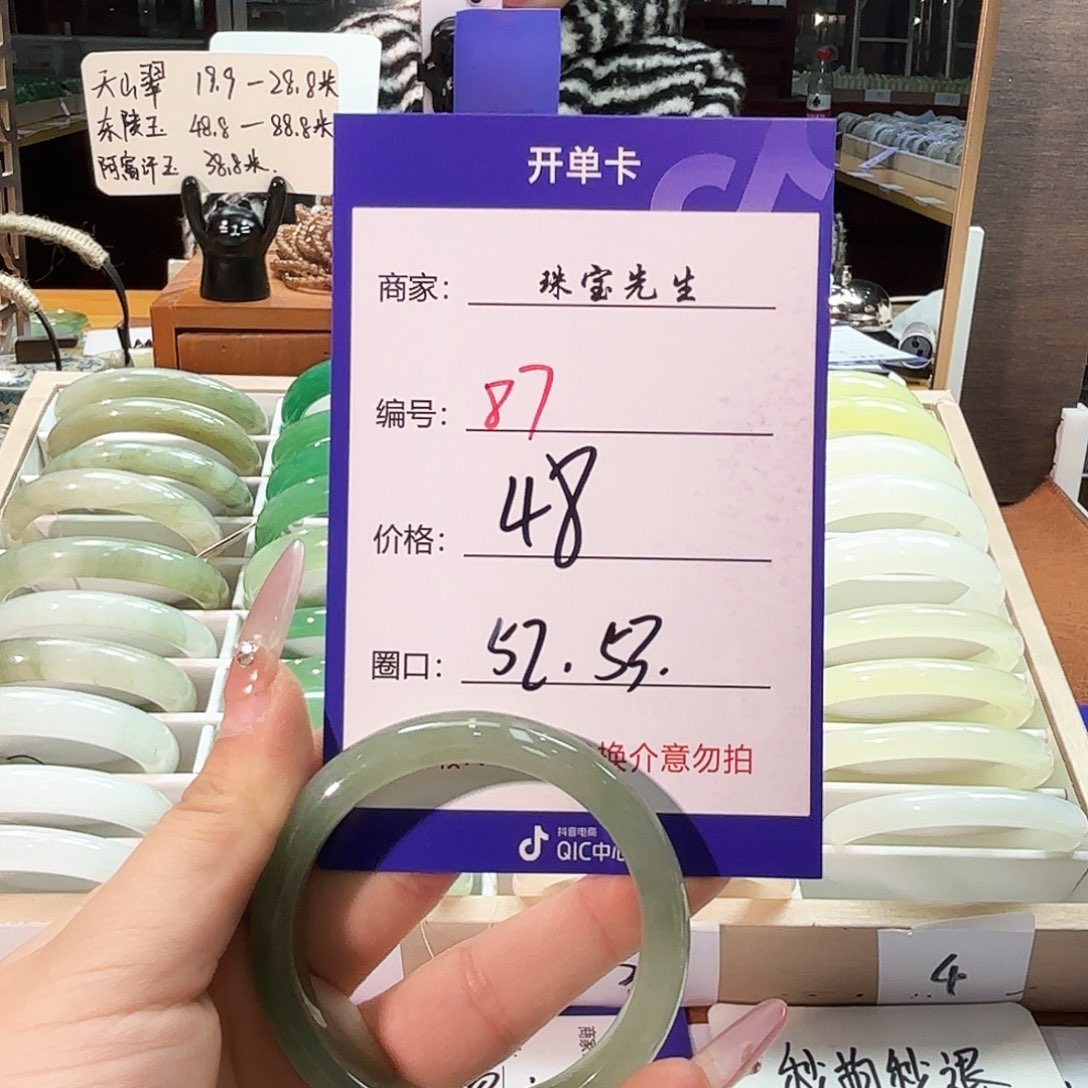 天山翠 18.9-28.8米
东陵玉 48.8-88.8米
阿富汗玉 38.8米.
开单卡
商家: 珠宝先生
编号: 87
价格: 48
圈口: 52.53.
换介意勿拍
抖音电商
QIC中心
4
商家
秒拍秒退